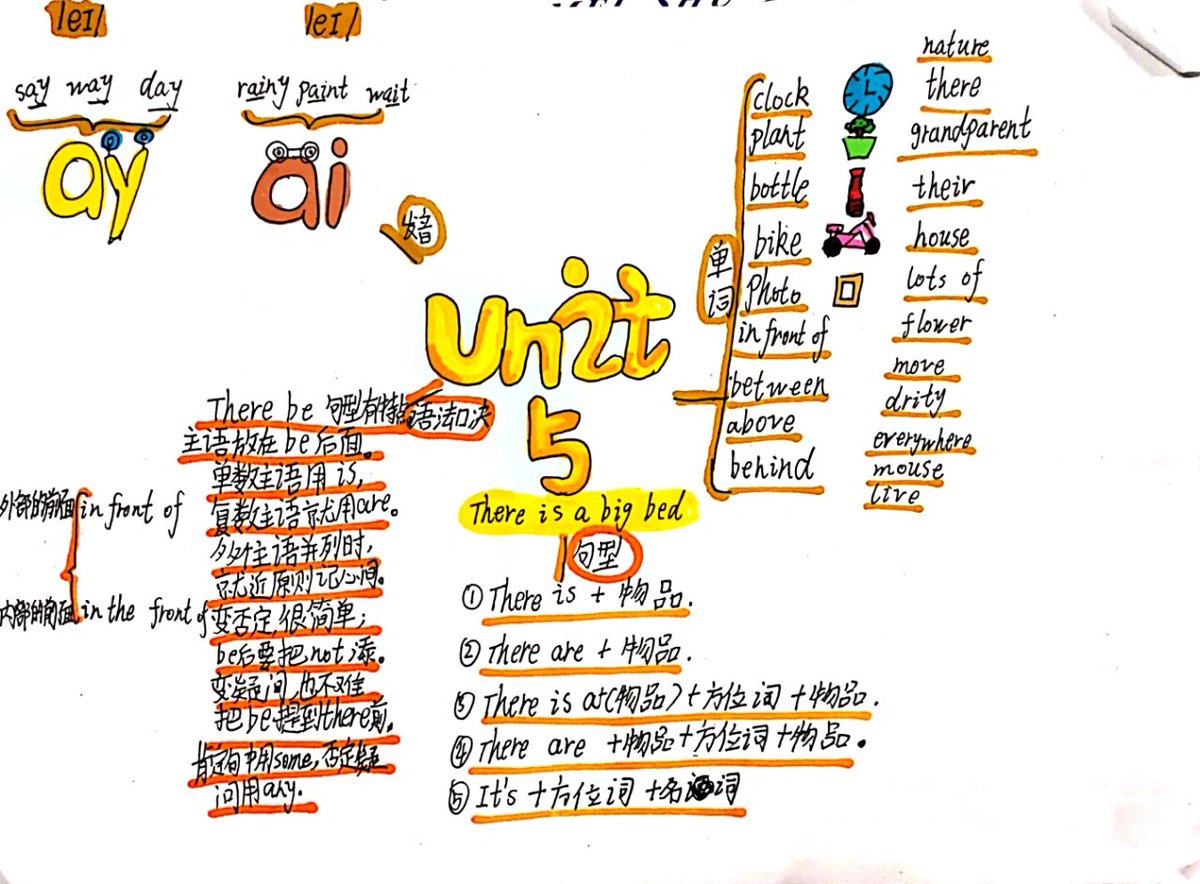 /eI/
/eI/
say way day
rainy paint wait
ay
ai
Unit
5
There is a big bed
单词
clock
plant
bottle
bike
Photo
in front of
between
above
behind
nature
there
grandparent
their
house
lots of
flower
move
drity
everywhere
mouse
live
语法口决
There be 句型有特点
主语放在be后面。
单数主语用is,
复数主语就用are。
多个主语并列时,
就近原则记心间。
变否定,很简单;
be后要把not添。
变疑问,也不难
把be提到there前。
肯定句中用some,否定疑
问用any.
外部的前面 in front of
内部的前面 in the front of
句型
① There is + 物品.
② There are + 物品.
③ There is a+(物品)+方位词+物品.
④ There are +物品+方位词+物品。
⑤ It's +方位词+名词